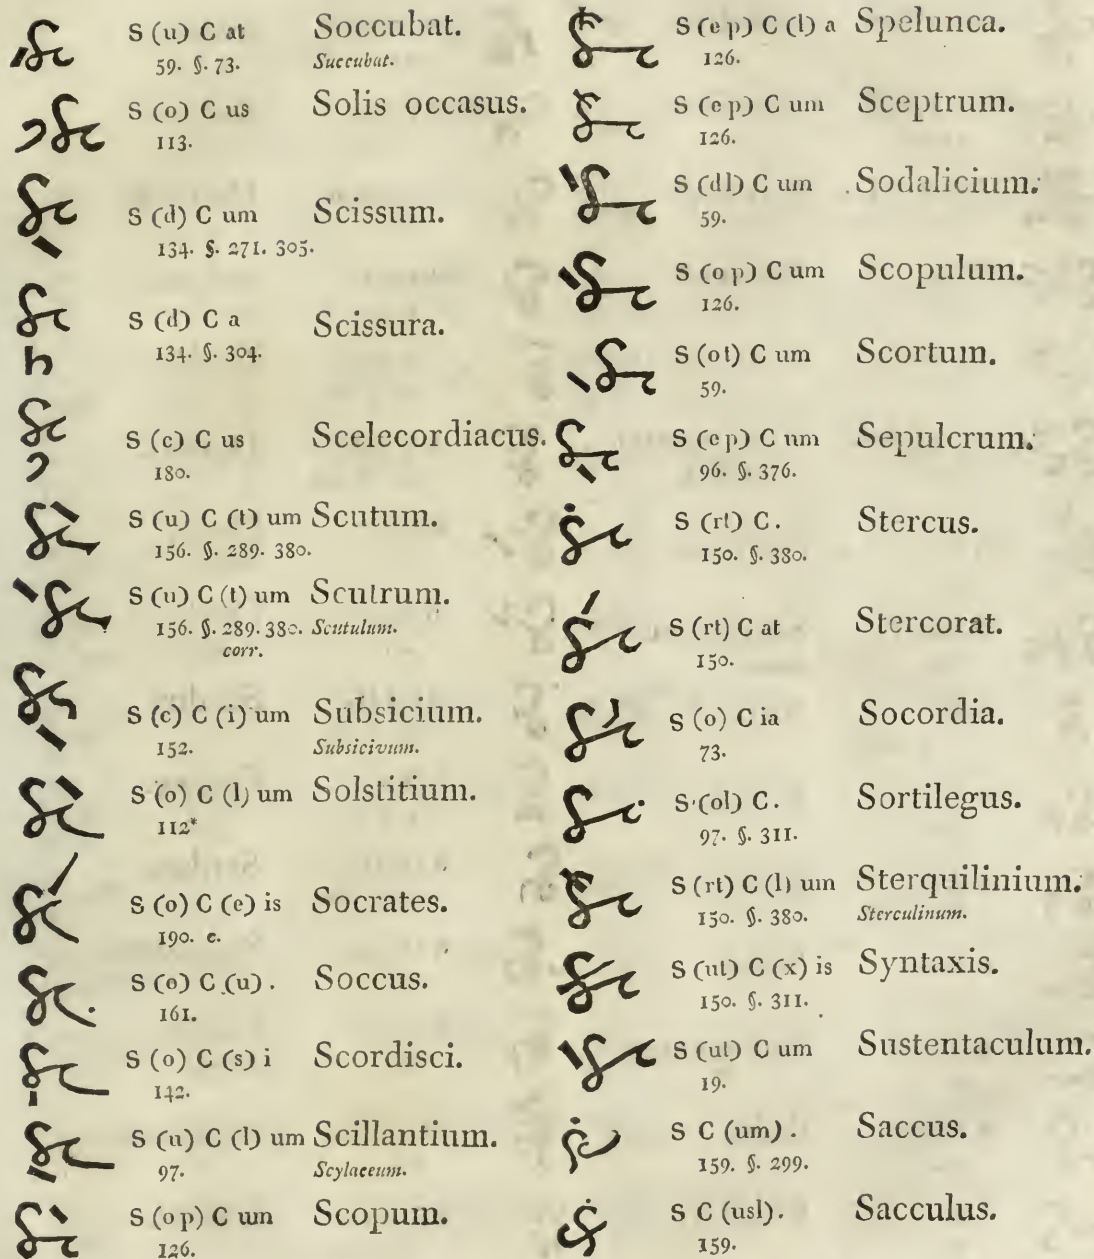 S (u) C at Soccubat.
59. §. 73. Succubat.
S (o) C us Solis occasus.
113.
S (d) C um Scissum.
134. §. 271. 305.
S (d) C a Scissura.
134. §. 304.
S (c) C us Scelecordiacus.
180.
S (u) C (t) um Scutum.
156. §. 289. 380.
S (u) C (t) um Scutrum.
156. §. 289. 380. Scutulum.
corr.
S (c) C (i) um Subsicium.
152. Subsicivum.
S (o) C (l) um Solstitium.
112*
S (o) C (e) is Socrates.
190. c.
S (o) C (u) . Soccus.
161.
S (o) C (s) i Scordisci.
142.
S (u) C (l) um Scillantium.
97. Scylaceum.
S (o p) C um Scopum.
126.
S (e p) C (l) a Spelunca.
126.
S (e p) C um Sceptrum.
126.
S (dl) C um Sodalicium.
59.
S (o p) C um Scopulum.
126.
S (ot) C um Scortum.
59.
S (e p) C um Sepulcrum.
96. §. 376.
S (rt) C . Stercus.
150. §. 380.
S (rt) C at Stercorat.
150.
S (o) C ia Socordia.
73.
S (ol) C . Sortilegus.
97. §. 311.
S (rt) C (l) um Sterquilinium.
150. §. 380. Sterculinum.
S (ut) C (x) is Syntaxis.
150. §. 311.
S (ut) C um Sustentaculum.
19.
S C (um) . Saccus.
159. §. 299.
S C (usl) . Sacculus.
159.